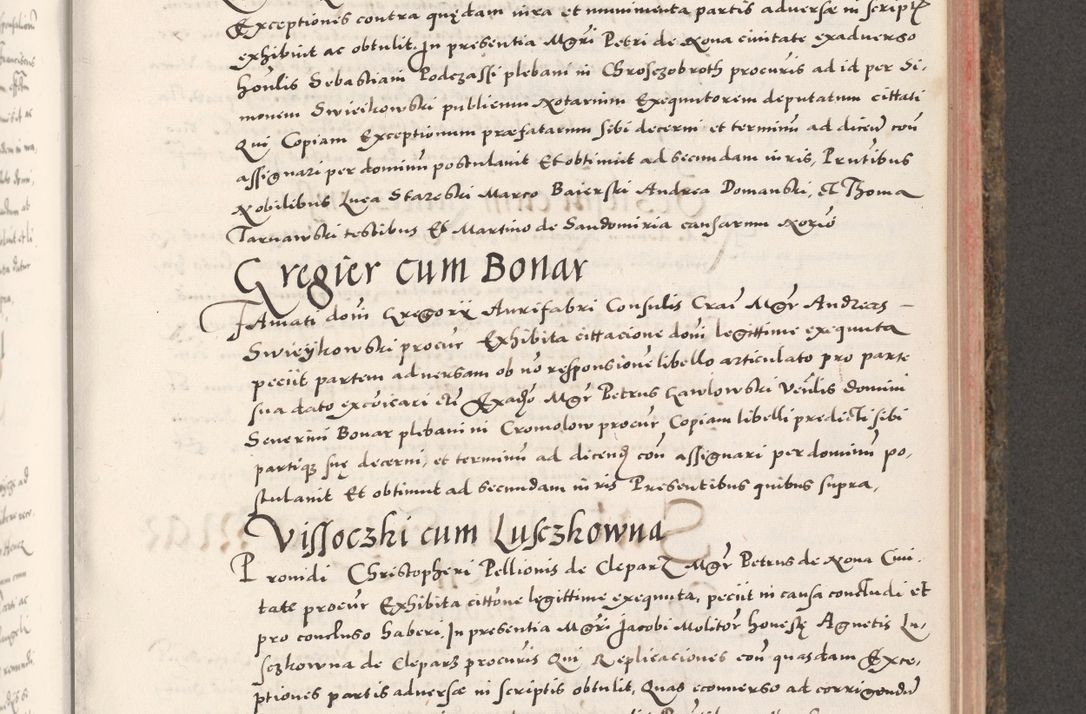 Exceptiones contra quędam iura et munimenta partis adversæ in script
exhibuit ac obtulit. In presentia Mgri Petri de Nova civitate exadverso
honlis Sebastiani Podczassi plebani in Chrosczobroth procuris ad id per Si-
monem Swieykowski publicum Notarium Exequutorem deputatum cittati
Qui Copiam Exceptionum præfatarum sibi decerni et terminū ad dicend con
assignari per dominum postulavit Et obtinuit ad secundam iuris, Prntibus
Nobilibus Luca Stareski Marco Baierski Andrea Domanski, et Thoma
Tarnawski testibus Et Martino de Sandomiria causarum Norio
Gregier cum Bonar
Famati dom Gregorii Aurifabri Consulis Crac Mgr Andreas
Swieykowski procur Exhibita cittacione domi legittime exequuta
peciit partem adversam ob no responsione libello articulato pro parte
sua dato excoicari etc Exadso Mgr Petrus Gawlowski Venlis domini
Severini Bonar plebani in Cromolow procur Copiam libelli predicti sibi
partiq suę decerni, et terminū ad dicend con assignari per dominū po-
stulavit Et obtinuit ad secundam iuris Presentibus quibus supra,
Vissoczki cum Lusczkowna
Providi Christopheri Pellionis de Clepar Mgr Petrus de Nova Civi-
tate procur Exhibita cittone legittime exequuta, peciit in causa concludi et
pro concluso haberi. In presentia Mgri Jacobi Molitor honestę Agnetis Lu-
sczkowna de Clepar procuris Qui Replicaciones con quasdam Exce-
ptiones partis adversæ in scriptis obtulit, Quas econverso ad corrigendū